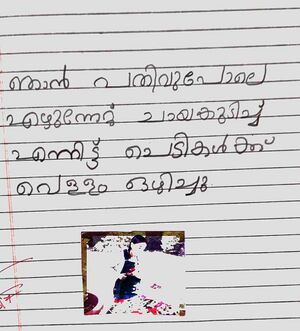 ഞാൻ പതിവുപോലെ
എഴുന്നേറ്റ് ചായകുടിച്ച്
എന്നിട്ട് ചെടികൾക്ക്
വെള്ളം ഒഴിച്ചു.